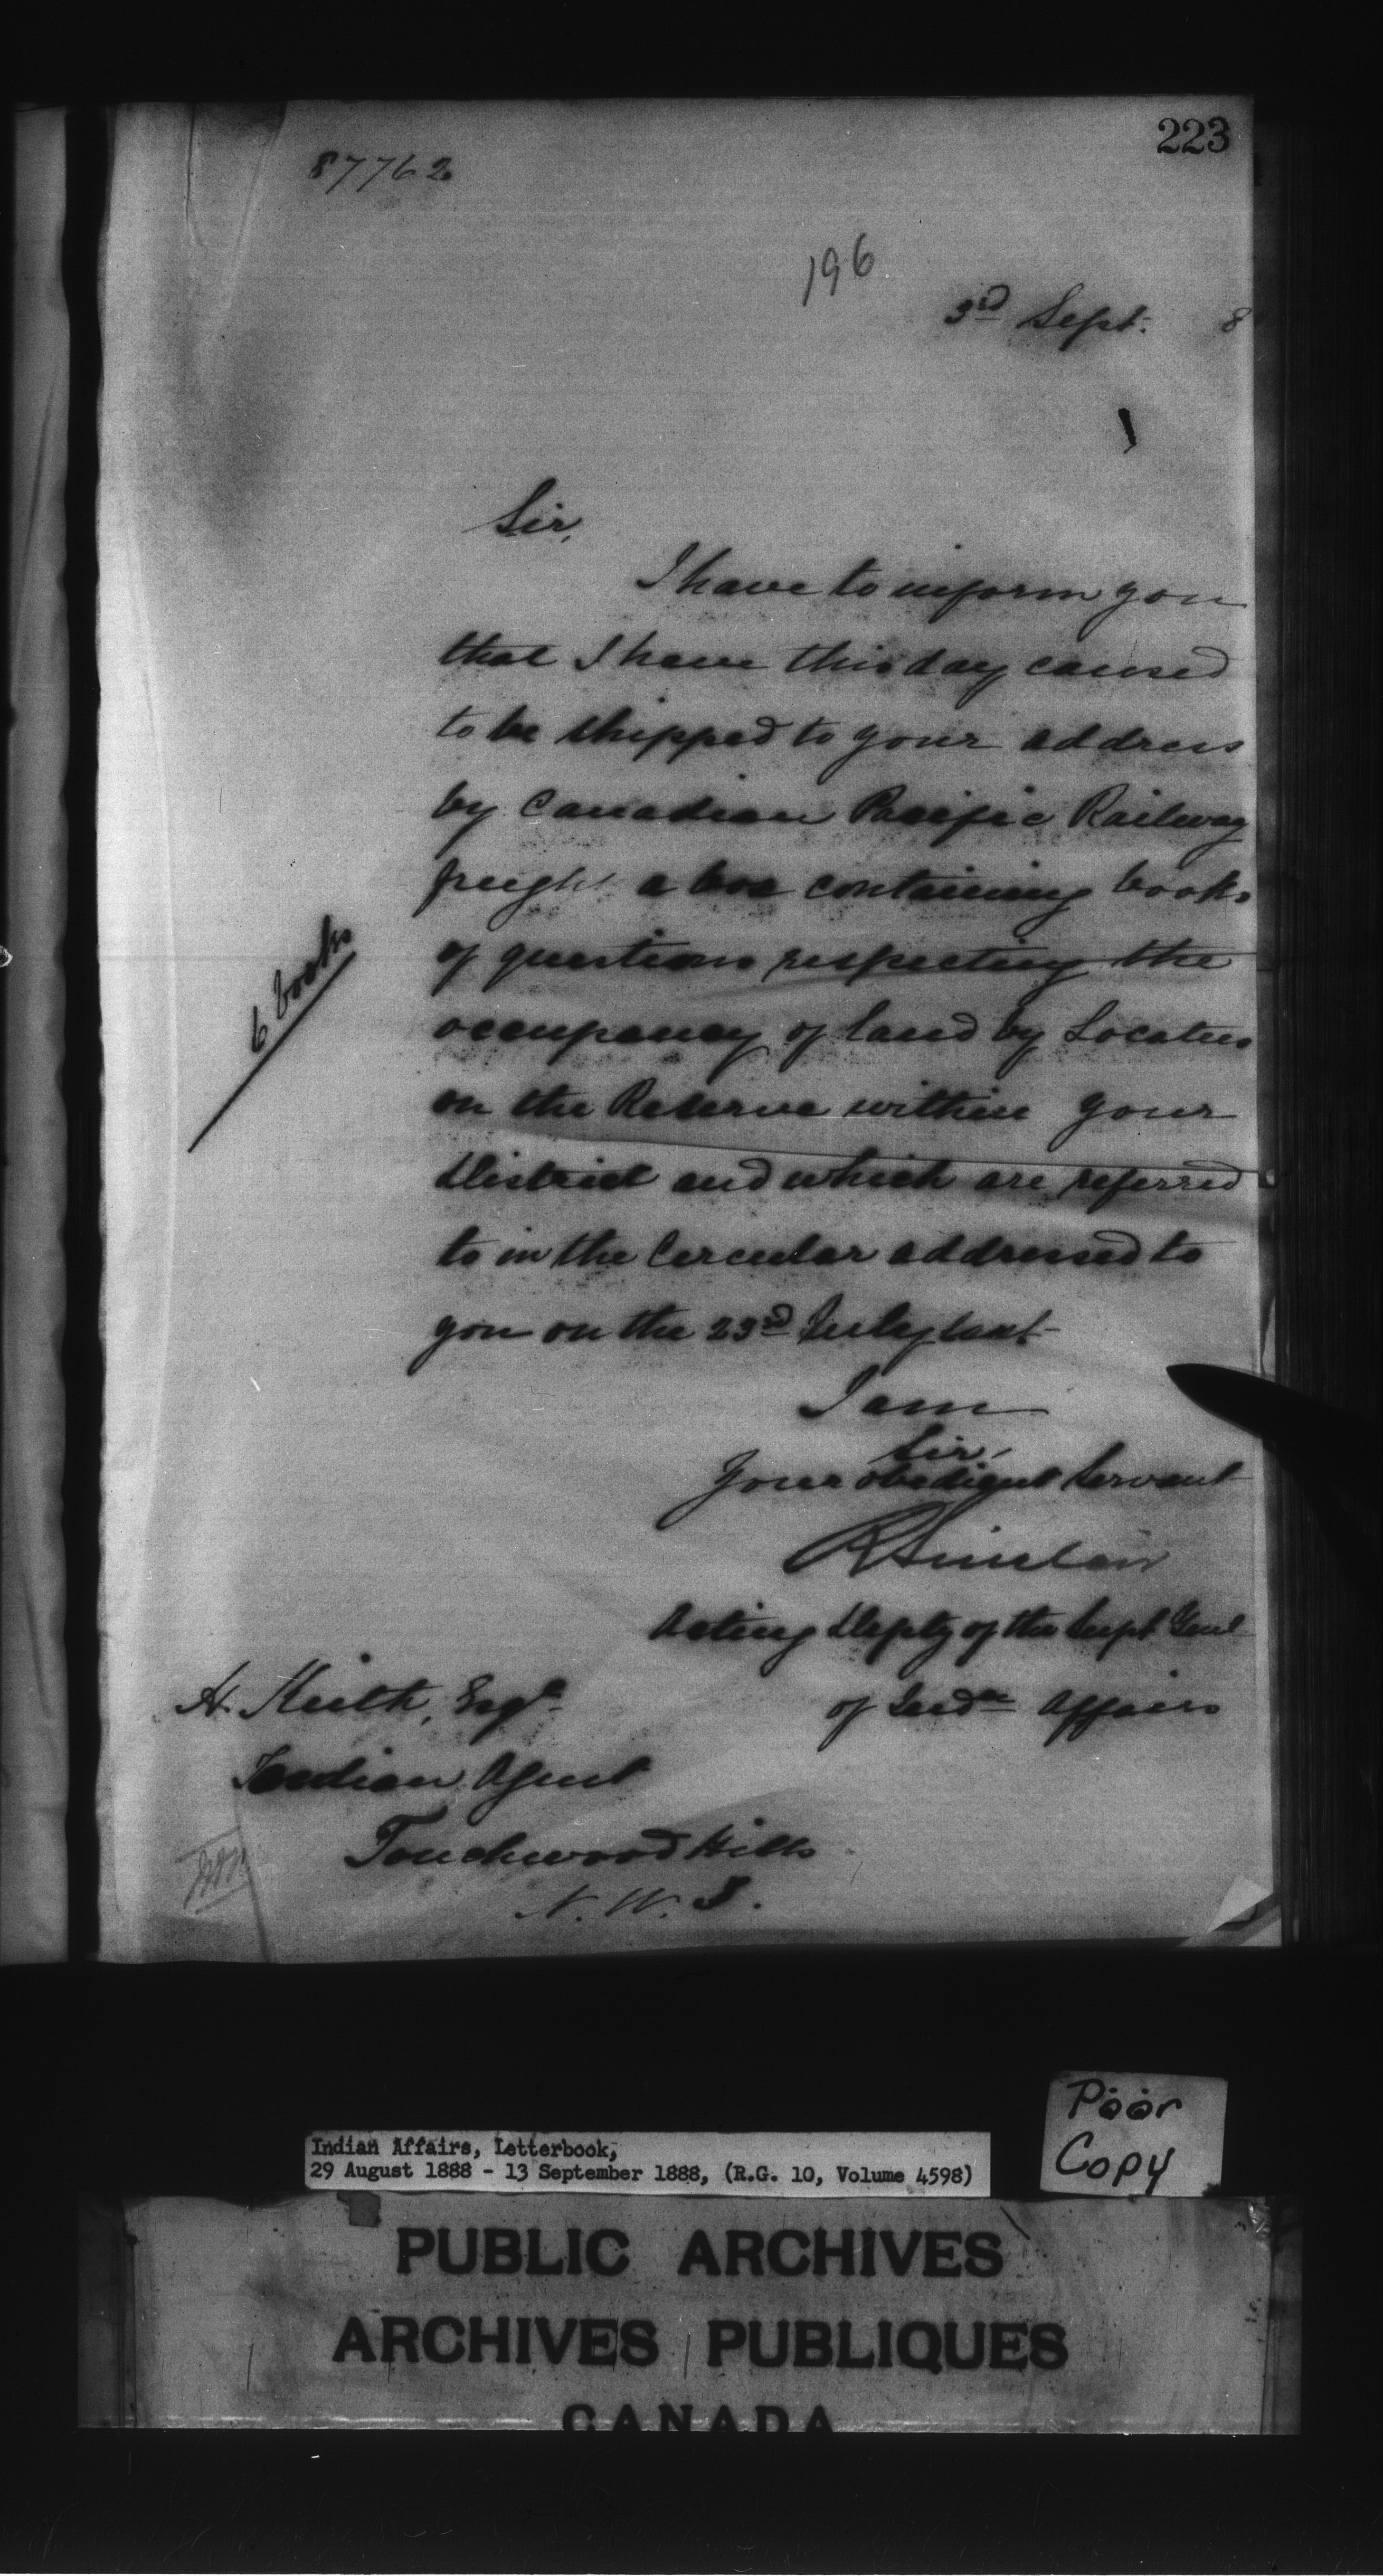 223
87762
196
3rd Sept. 8
Sir,
I have to inform you
that I have this day caused
to be shipped to your address
by Canadian Pacific Railway
freight a box containing books
of questions respecting the
occupancy of land by Locatees
on the Reserve within your
District and which are referred
to in the Circular addressed to
you on the 23rd July last
6 books
I am
Sir,
Your obedient Servant
R Sinclair
Acting Depty of the Supt Genl
of Indn Affairs
H. Keith, Esqr
Indian Agent
Touchwood Hills
N. W. T.
Poor
Copy
Indian Affairs, Letterbook,
29 August 1888 - 13 September 1888, (R.G. 10, Volume 4598)
PUBLIC ARCHIVES
ARCHIVES PUBLIQUES
CANADA